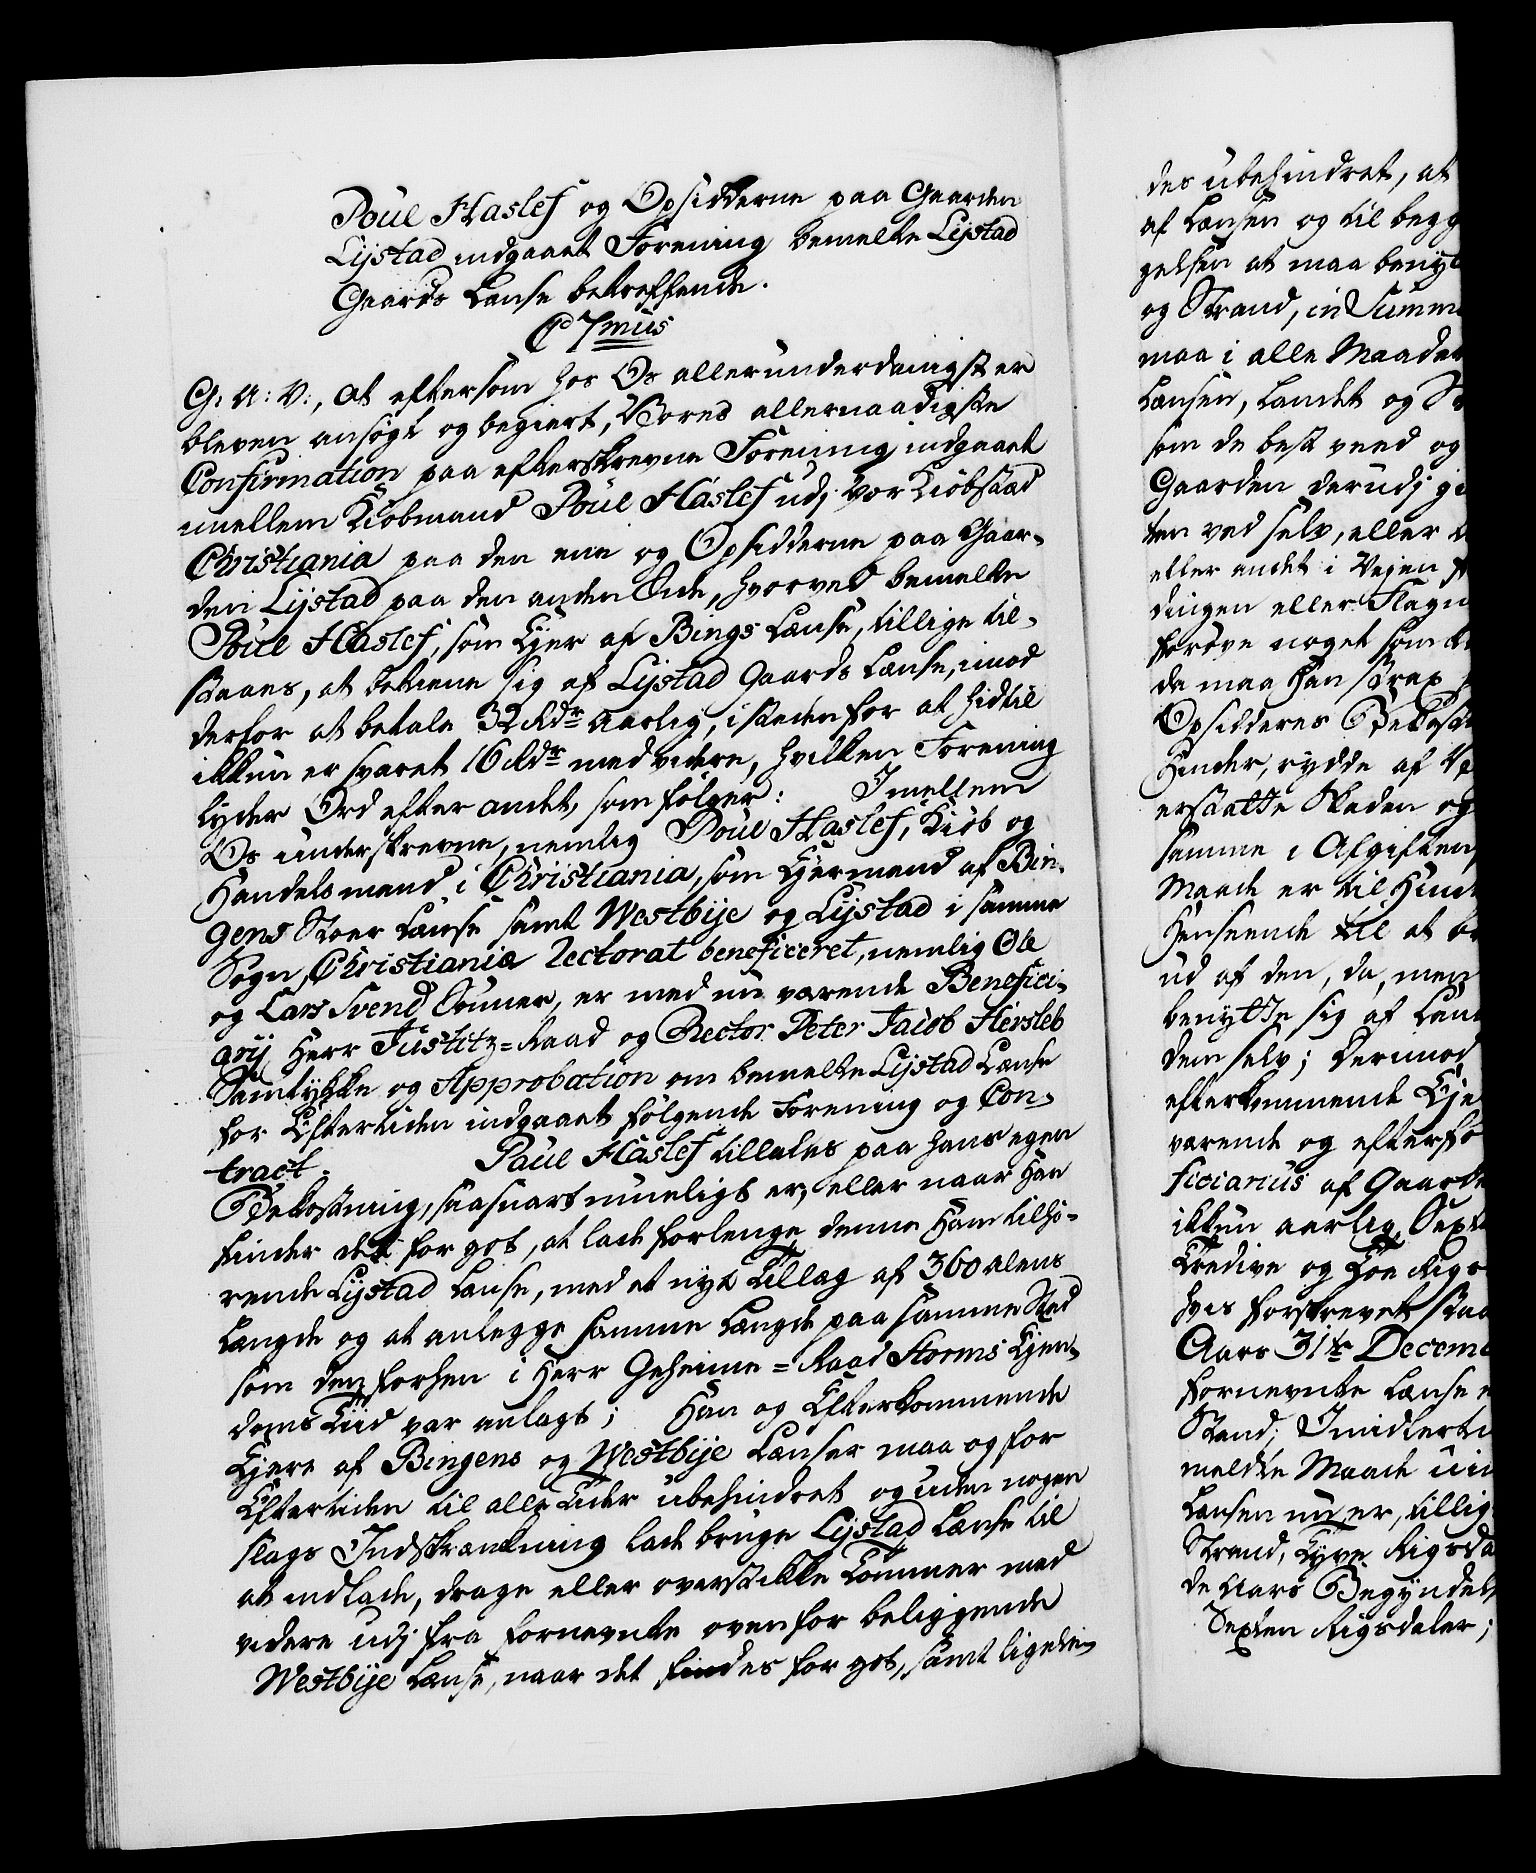 Poul Haslef og Opsidderne paa Gaarden
Lystad indgaaet Forening bemelte Lystad
Gaards Lænse betreffende.
C 7mus
G: A: V:, at eftersom hos Os allerunderdanigst er
bleven ansøgt og begiert, Vores allernaadigste
Confirmation paa efterskrevne Forening indgaaet
imellem Kiøbmand Poul Haslef udj Vor Kiøbstad
Christiania paa den ene og Opsidderne paa Gaar-
den Lystad paa den anden Side, hvorved bemelte
Poul Haslef, som Ejer af Bings Lænse, tillige til-
staaes, at betiene sig af Lystad Gaards Lænse, imod
derfor at betale 32 Rdr aarlig, i steden for at hidtil
ikkun er svaret 16 Rdr med videre, hvilken Forening
lyder Ord efter andet, som følger: Imellem
Os underskrevne, nemlig Poul Haslef, Kiøb og
Handelsmand i Christiania, som Ejermand af Bin-
gens Stoer Lænse samt Westbye og Lystad i samme
Sogn, Christiania Rectorat beneficeret, nemlig Ole
og Lars Svend Sönner, er med nu værende Benefici-
arij Herr Justitz-Raad og Rector Peter Jacob Hersleb
Samtykke og Approbation om bemelte Lystad Lænse
for Eftertiden indgaaet følgende Forening og Con-
tract. Paul Haslef tillades paa hans egen
Bekostning, saasnart mueligt er, eller naar Han
finder det for got, at lade forlenge denne Ham tilhø-
rende Lystad Lænse, med et nyt Tillæg af 360 alens
Længde og at anlegge samme Længde paa samme Sted
som den forhen i Herr Geheime-Raad Storms Ejen-
doms Tiid var anlagt; Han og Efterkommende
Ejere af Bingens og Westbye Lænser maa og for
Eftertiden til alle Tider ubehindret og uden nogen
slags Indskrænkning lade bruge Lystad Lænse til
at indlade, drage eller overstikke Tømmer med
videre udj fra fornevnte ovenfor beliggende
Westbye Lænse, naar det findes for got, samt ligelee-
des ubehindret, at
af Lænsen og til begg
gelsen at maa beny
og Strand, in Summ
maa i alle Maader
Lænsen, Landet og
som de best veed og
Gaarden derudj gi
ten ved selv, eller
eller andet i Vejen
dingen eller Slagn
forøve noget som
da maa Han strax
Opsidderes Bekost
Hinder, rydde af
erstatte Skaden og
samme i Afgiften,
Maade er til Hind
Henseende til at
ud af den, da, men
benytte sig af Lænd
dem selv; Derimod
efterkommende Eje
værende og efterfø
ficiarius af Gaard
ikkun aarlig Sexten
Tredive og Toe Rigs
hvis forskrevet staa
Aars 31te Decem
fornevnte Lænse
Stand; Imidlerti
meldte Maade
Lænsen nu er, tillig
Strand, Tyve Rigsda
de Aars Begyndel
Sexten Rigsdaler;